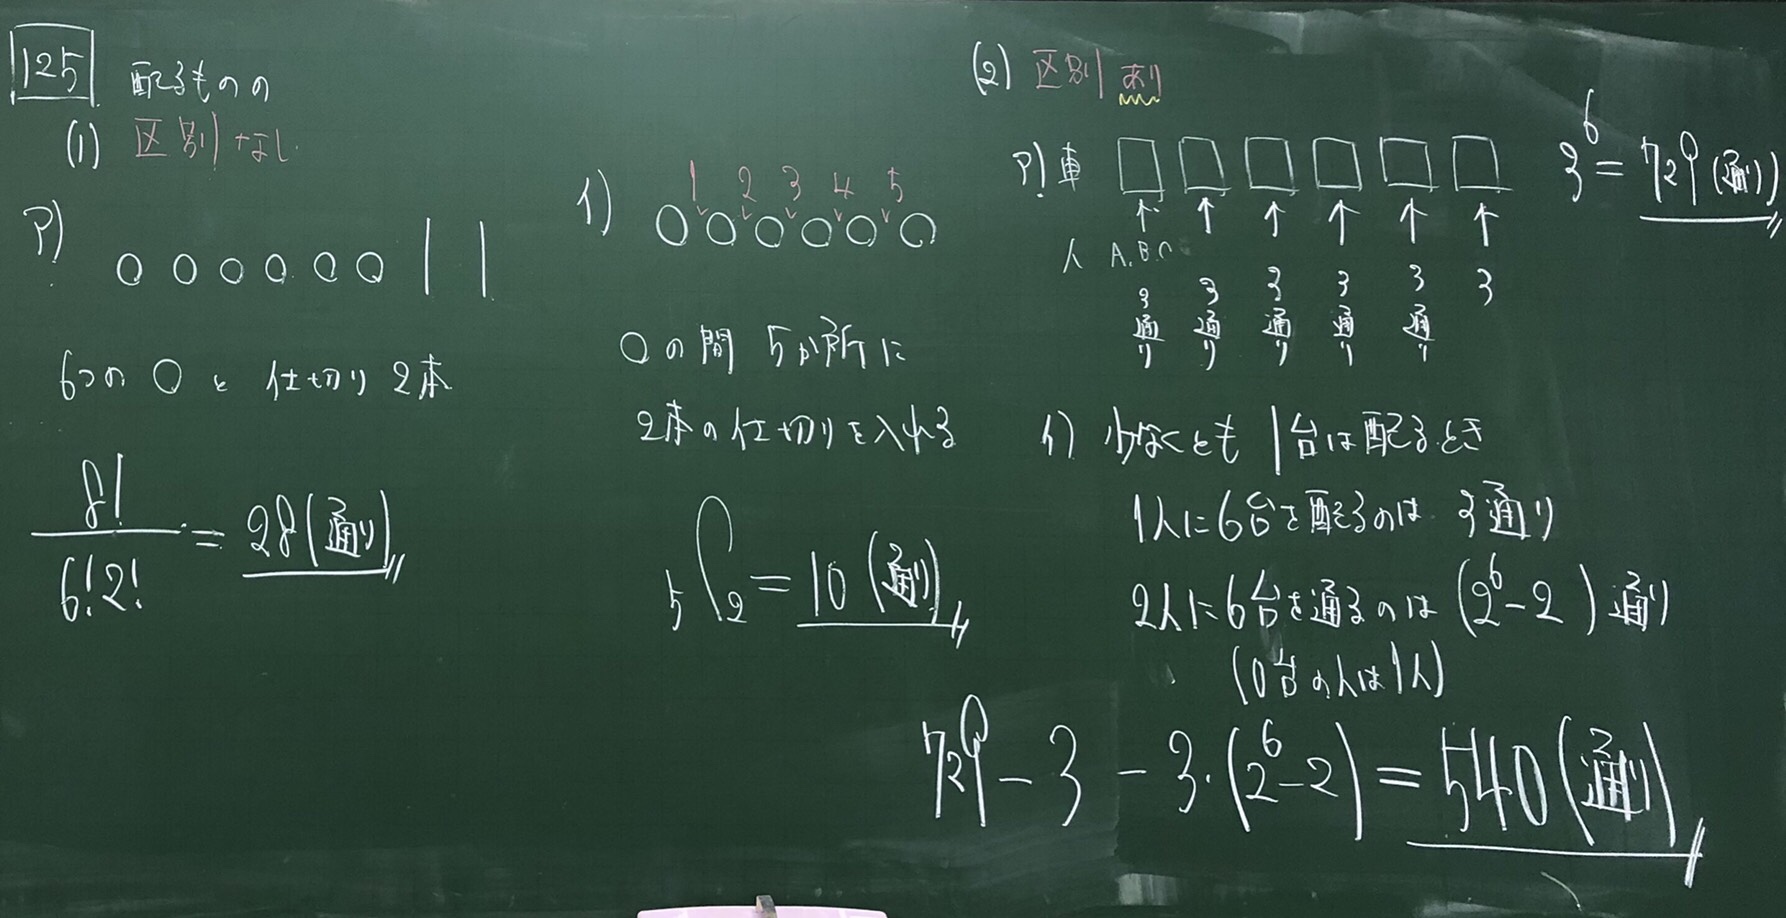 125
配るものの
(1) 区別なし
ア)
○ ○ ○ ○ ○ ○ | |
6つの○と仕切り2本
8!/6!2! = 28(通り)
イ)
1 2 3 4 5
○○○○○○
○の間 5か所に
2本の仕切りを入れる
5C2 = 10(通り)
(2) 区別あり
ア) 車 □ □ □ □ □ □
↑ ↑ ↑ ↑ ↑ ↑
人 A.B.C
3通り 3通り 3通り 3通り 3通り 3
3^6 = 729(通り)
イ) 少なくとも1台は配るとき
1人に6台を配るのは 3通り
2人に6台を通るのは (2^6-2)通り
(0台の人は1人)
729 - 3 - 3・(2^6-2) = 540(通り)